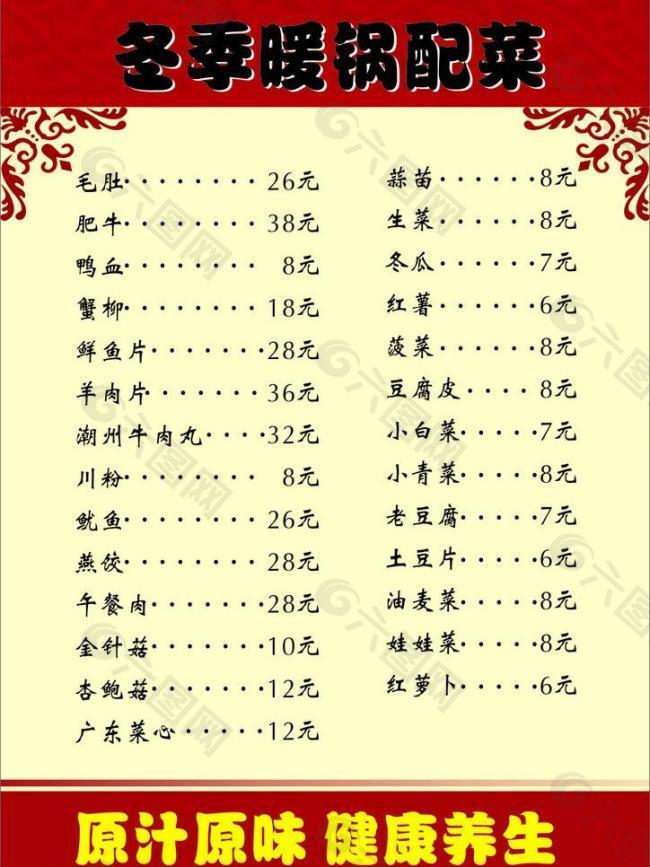 冬季暖锅配菜
毛肚········26元
肥牛········38元
鸭血········ 8元
蟹柳········18元
鲜鱼片·······28元
羊肉片·······36元
潮州牛肉丸····32元
川粉········ 8元
鱿鱼········26元
燕饺········28元
午餐肉·······28元
金针菇·······10元
杏鲍菇·······12元
广东菜心·····12元
蒜苗······8元
生菜······8元
冬瓜······7元
红薯······6元
菠菜······8元
豆腐皮···· 8元
小白菜·····7元
小青菜·····8元
老豆腐·····7元
土豆片·····6元
油麦菜·····8元
娃娃菜·····8元
红萝卜·····6元
原汁原味 健康养生
六图网